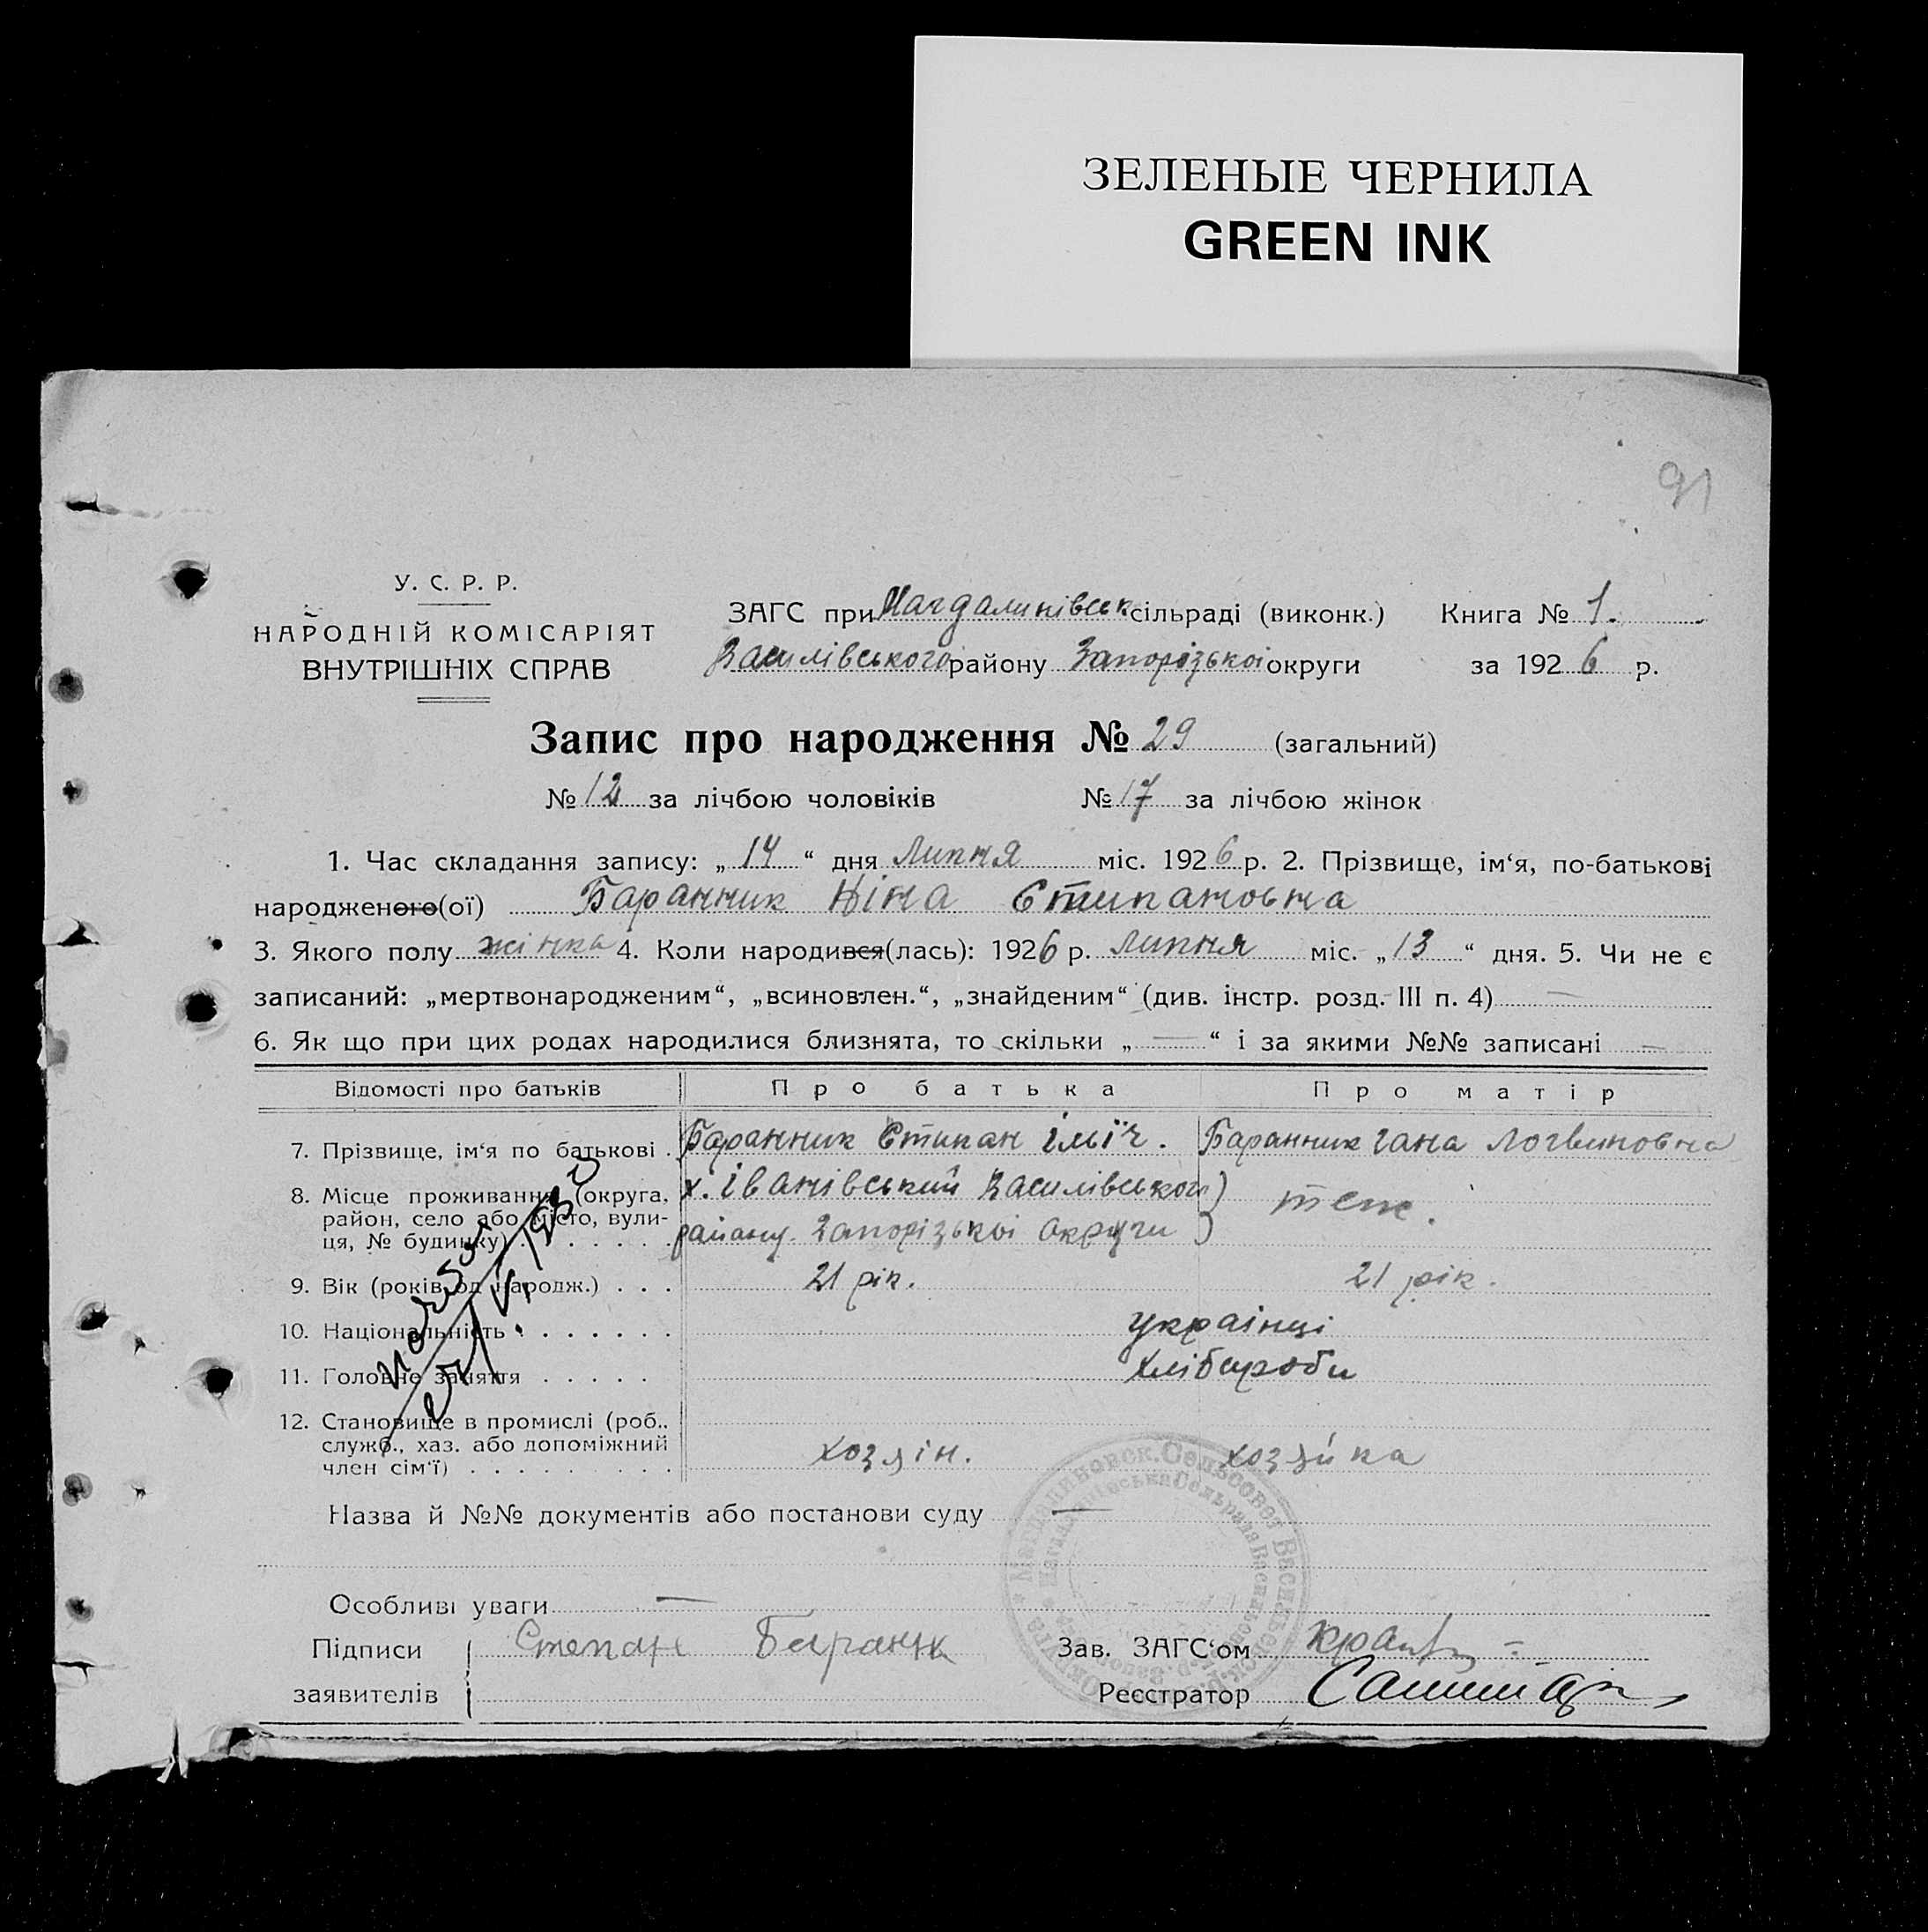 ЗЕЛЕНЫЕ ЧЕРНИЛА
GREEN INK
91
У. С. Р. Р.
НАРОДНІЙ КОМІСАРІЯТ
ВНУТРІШНІХ СПРАВ
ЗАГС при Магдалинівськ сільраді (виконк.) Книга № 1.
Василівського району Запорізькоі округи за 1926 р.
Запис про народження № 29 (загальний)
№ 12 за лічбою чоловіків № 17 за лічбою жінок
1. Час складання запису: „ 14 “ дня Липня міс. 1926 р. 2. Прізвище, ім‘я, по-батькові
народженого(ої) Баранник Ніна Стипановна
3. Якого полу жінка 4. Коли народився(лась): 1926 р. Липня міс. „ 13 “ дня. 5. Чи не є
записаний: „мертвонародженим“, „всиновлен.“, „знайденим“ (див. інстр. розд. III п. 4) —
6. Як що при цих родах народилися близнята, то скільки „ — “ і за якими №№ записані —
Відомості про батьків Про батька Про матір
7. Прізвище, ім‘я по батькові . Баранник Стипан Ілліч. Баранник Гана Логвиновна
8. Місце проживання (округа, район, село або місто, вулиця, № будинку) х. Іванівський Василівського
району Запорізькоі Округи теж.
9. Вік (років од народж.) . . . 21 рік. 21 рік.
10. Національність . . . . . . . українці
11. Головне заняття . . . . . хлібароби
12. Становище в промислі (роб.,
служб., хаз. або допоміжний
член сім‘ї) . . . . . . . . . хозяін. хозяйка
Магдалиновск. Сельсовет Васильевск
Назва й №№ документів або постанови суду —
Особливі уваги —
Підписи Степан Баранк Зав. ЗАГС‘ом
заявителів Реєстратор